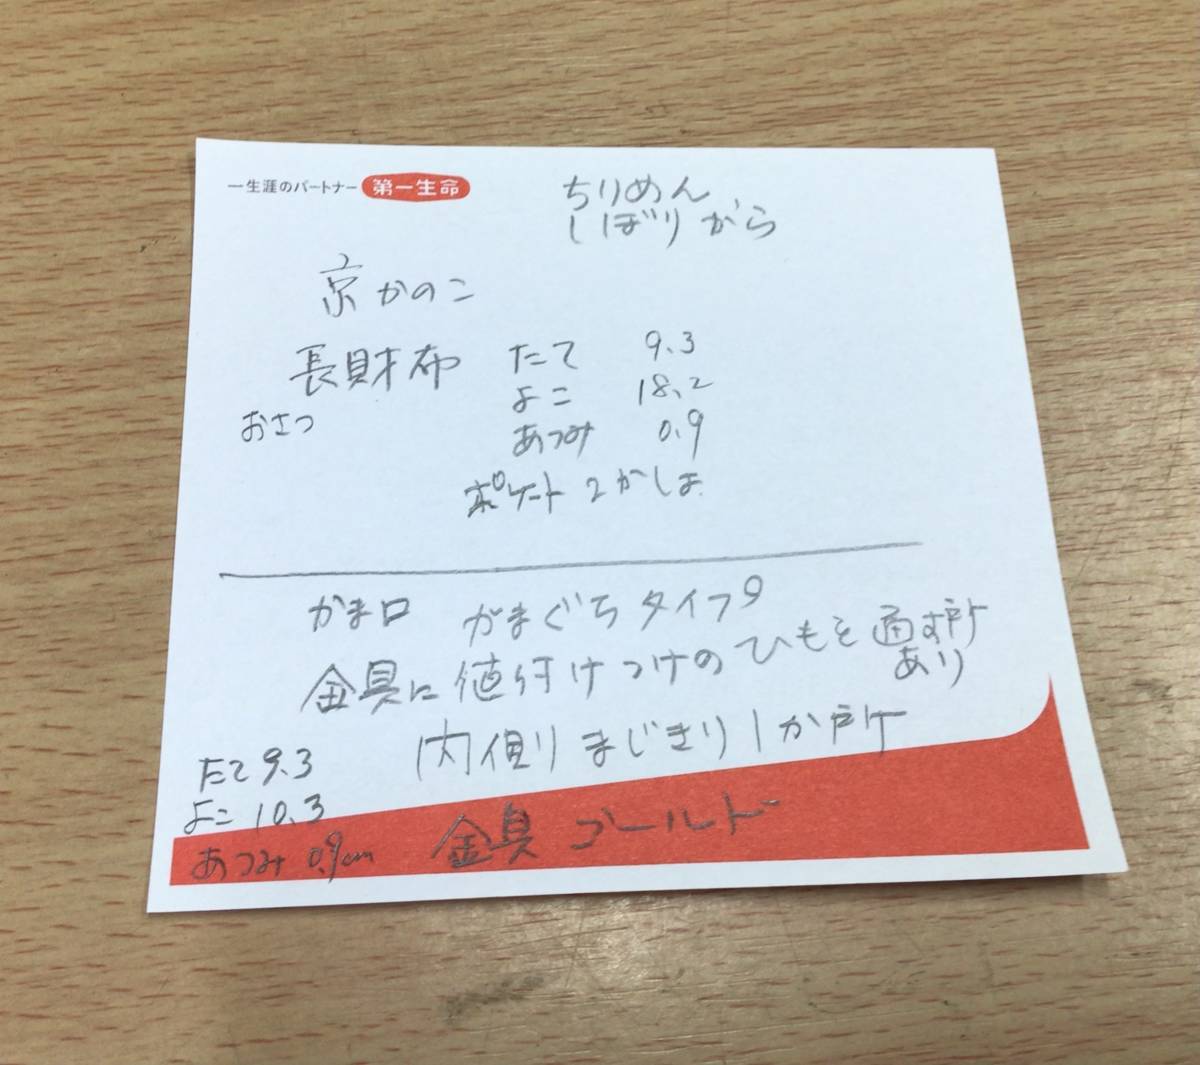 一生涯のパートナー 第一生命
ちりめん
しぼりがら
京かのこ
長財布 たて 9.3
よこ 18.2
おさつ
あつみ 0.9
ポケート 2かしょ
かま口 がまぐちタイプ
金具に値付けつけのひもを通す所
あり
内側りまじきり1か所
たて 9.3
よこ 10.3
あつみ 0.9cm
金具 ゴールド